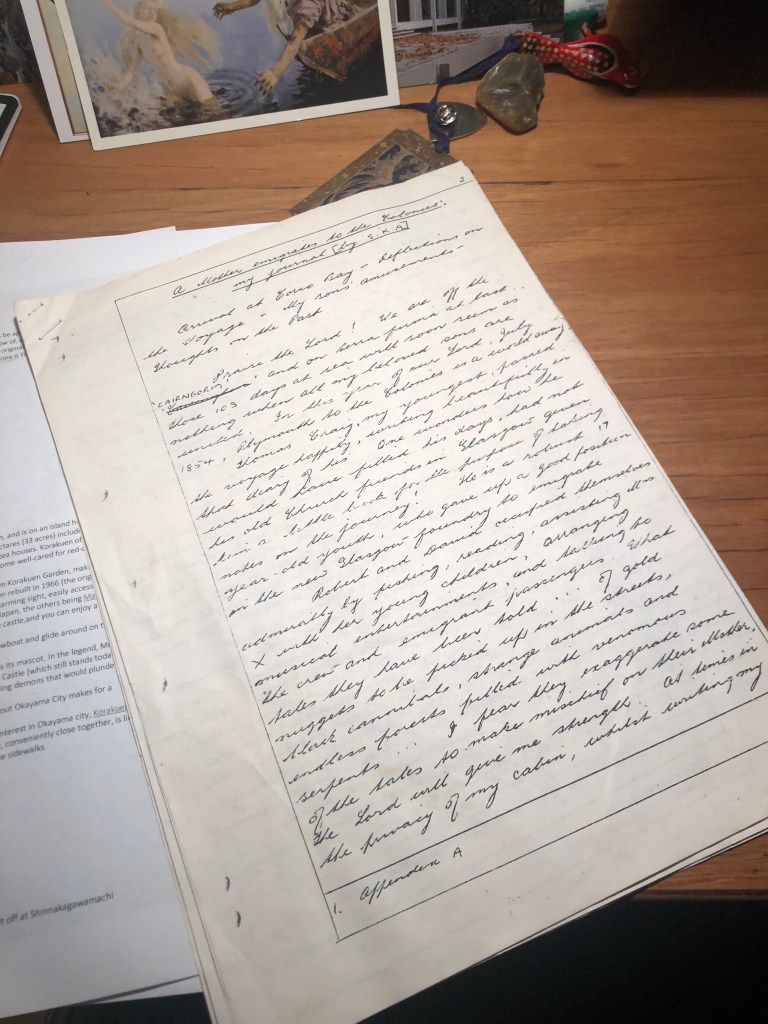 2
A Mother emigrates to the Colonies:
my journal [by S.K.A]
Arrival at Corio Bay - Reflections on
the Voyage - My sons amusements -
Thoughts on the Past
Praise the Lord! We are off the
"CAIRNGORM" and on terra firma at last.
Those 103 days at sea will soon seem as
nothing when all my beloved sons are
united. In this year of our Lord, July
1854, Plymouth to the Colonies is a world away.
Thomas Craig, my youngest, passed
the voyage happily, writing beautifully in
that diary of his. One wonders how he
would have filled his days, had not
his old Church friends in Glasgow given
him a little book for the purpose of taking
notes on the journey.¹ He is a robust 17
year-old youth, who gave up a good position
in the new Glasgow foundry to emigrate.
Robert and David occupied themselves
admirably by fishing, reading, assisting Mrs
X with her young children, arranging
musical entertainments, and talking to
the crew and emigrant passengers. What
tales they have been told ... of gold
nuggets to be picked up in the streets,
black cannibals, strange animals and
endless forests filled with venomous
serpents ... I fear they exaggerate some
of the tales to make mischief on their Mother,
the Lord will give me strength. At times in
the privacy of my cabin, whilst writing my
1. Appendix A
and is on an island
ctares (33 acres)
tea houses. Korakuen
ome well-cared for red-c
m Korakuen Garden,
n rebuilt in 1966 (the orig
arming sight, easily access
apan, the others being
castle,and you can enjoy a
wboat and glide around on t
s its mascot. In the legend,
Castle (which still stands toda
ing demons that would plunde
out Okayama City makes for a
nterest in Okayama city, Korakuen
conveniently close together, is
e sidewalks.
t off at Shinnakagawamachi